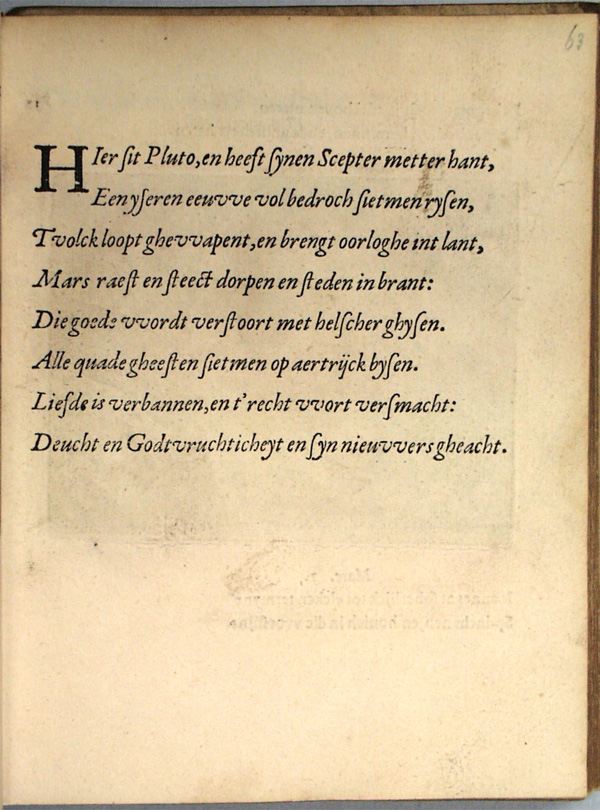 63
HIer ſit Pluto, en heeft ſynen Scepter metter hant,
Een yſeren eeuvve vol bedroch ſietmen ryſen,
Tvolck loopt ghevvapent, en brengt oorloghe int lant,
Mars raeſt en ſteect dorpen en ſteden in brant:
Die goede vvordt verſtoort met helſcher ghyſen.
Alle quade gheeſten ſietmen op aertrijck byſen.
Liefde is verbannen, en t'recht vvort verſmacht:
Deucht en Godtvruchticheyt en ſyn nieuvvers gheacht.